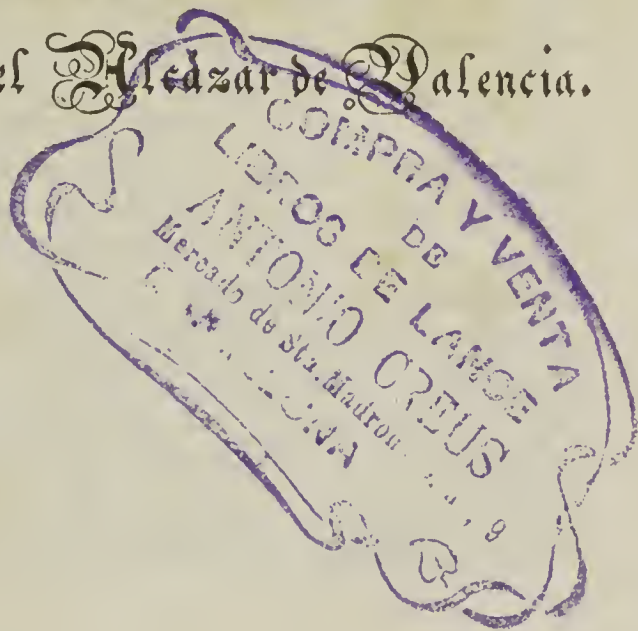 el Alcázar de Valencia.
COMPRA Y VENTA
DE
LIBROS DE LANCE
ANTONIO CREUS
Mercado de Sta. Madrona
9